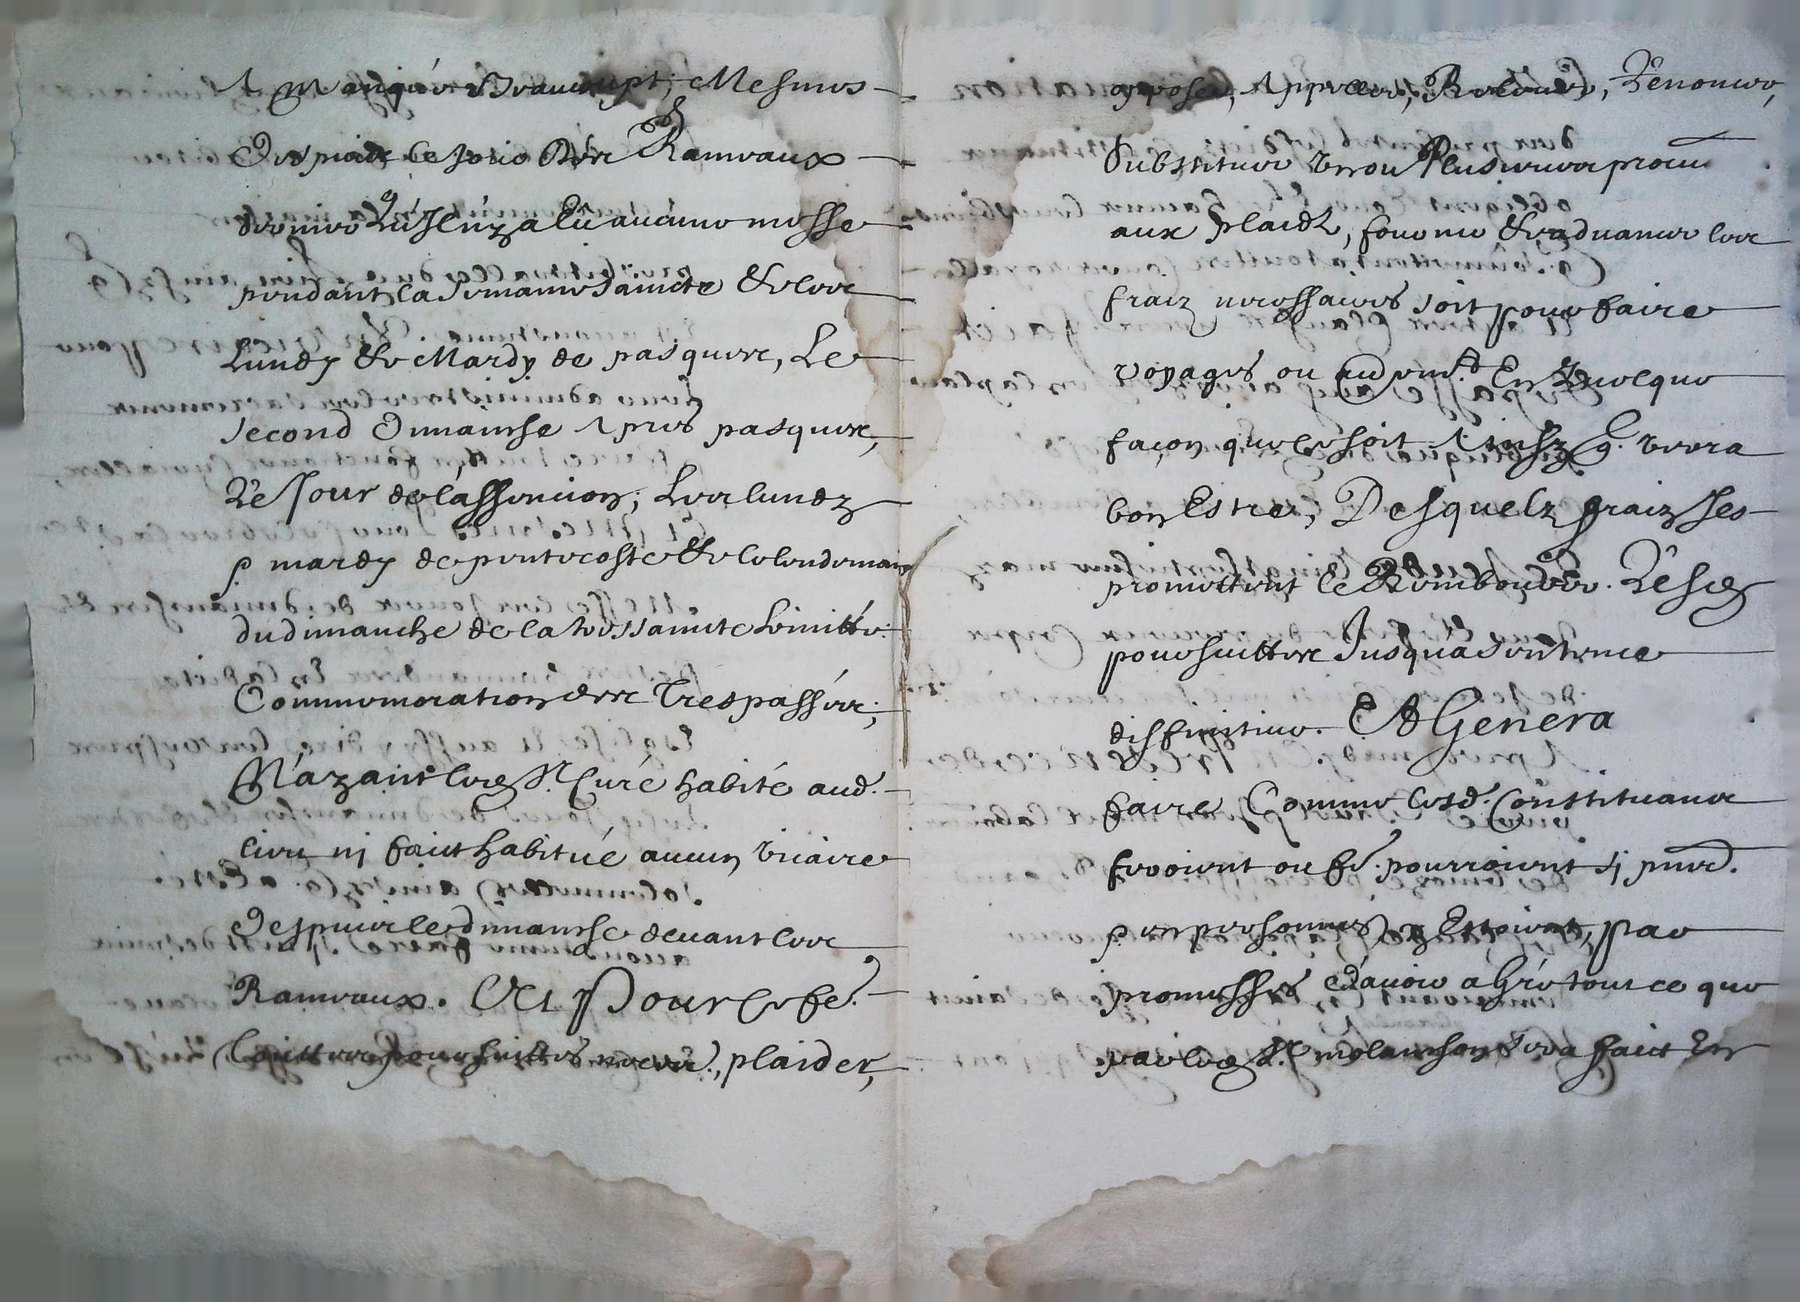 A Manqué Beaucoupt, Mesmes
Despuis le Jour des Rameaux
dernier Qu'Il n'y a Eu aucune messe
pendant la Semaine Saincte & les
Lundy & Mardy de pasques, Le
second Dimanche Apres pasques,
Le Jour de l'assencion, Les lundy
& mardy de pentecoste & le lendemain
du dimanche de la toussaincte
Commemoration des Trespassés;
N'ayant led. Sr. Curé habité aud.
lieu ni faict habitué aucun vicaire
Despuis le dimanche devant les
Rameaux. Et Pour ce fe.
touttes poursuittes necess., plaider,
opposer, Appeller, Relever, Renoncer,
Substituer un ou Plusieurs procu
aux plaidz, fournir & advancer les
fraiz necessaires soit pour faire
voyages ou autremt. En quelque
façon que ce soit Ainsy q. verra
bon Estre, Desquelz fraiz Ilz
promettent le Rembourser. Lesd.
poursuittes Jusqua Sentence
diffinitive. Et Genera
faire Comme lesd. Constituans
feroient ou fe. pourroient sy pnts.
& en personnes y Estoient, par
promesses d'avoir a Gré tout ce que
par led. Sr. melanchon sera faict En